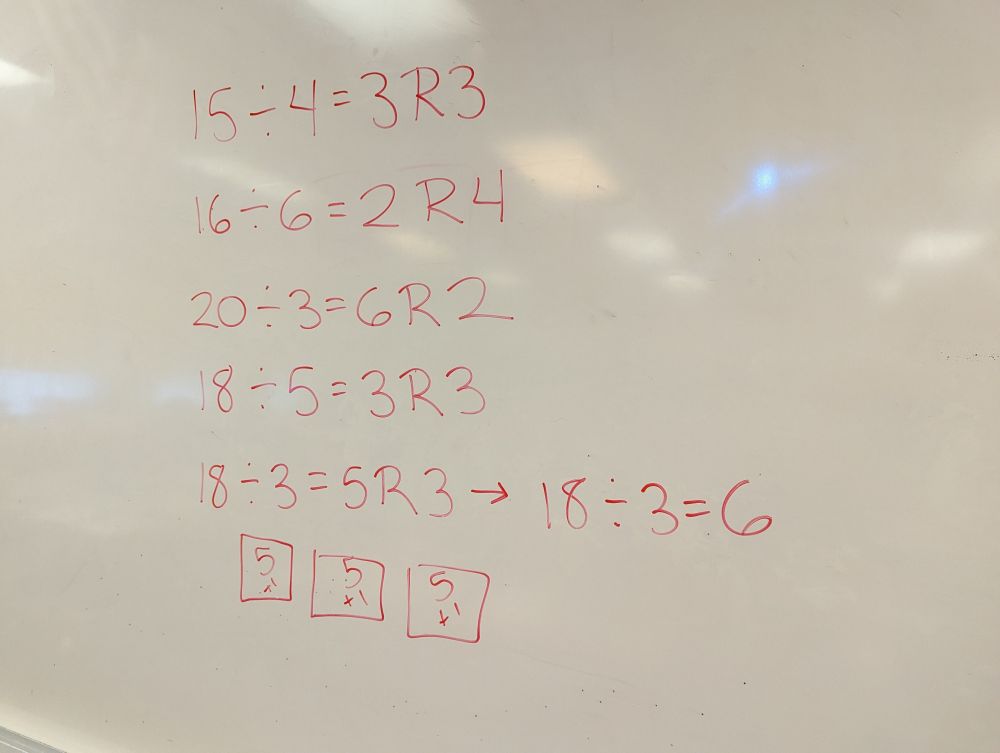 15÷4=3R3
16÷6=2 R4
20÷3=6R2
18÷5=3R3
18÷3=5R3 → 18÷3=6
5 5 5
+1 +1 +1